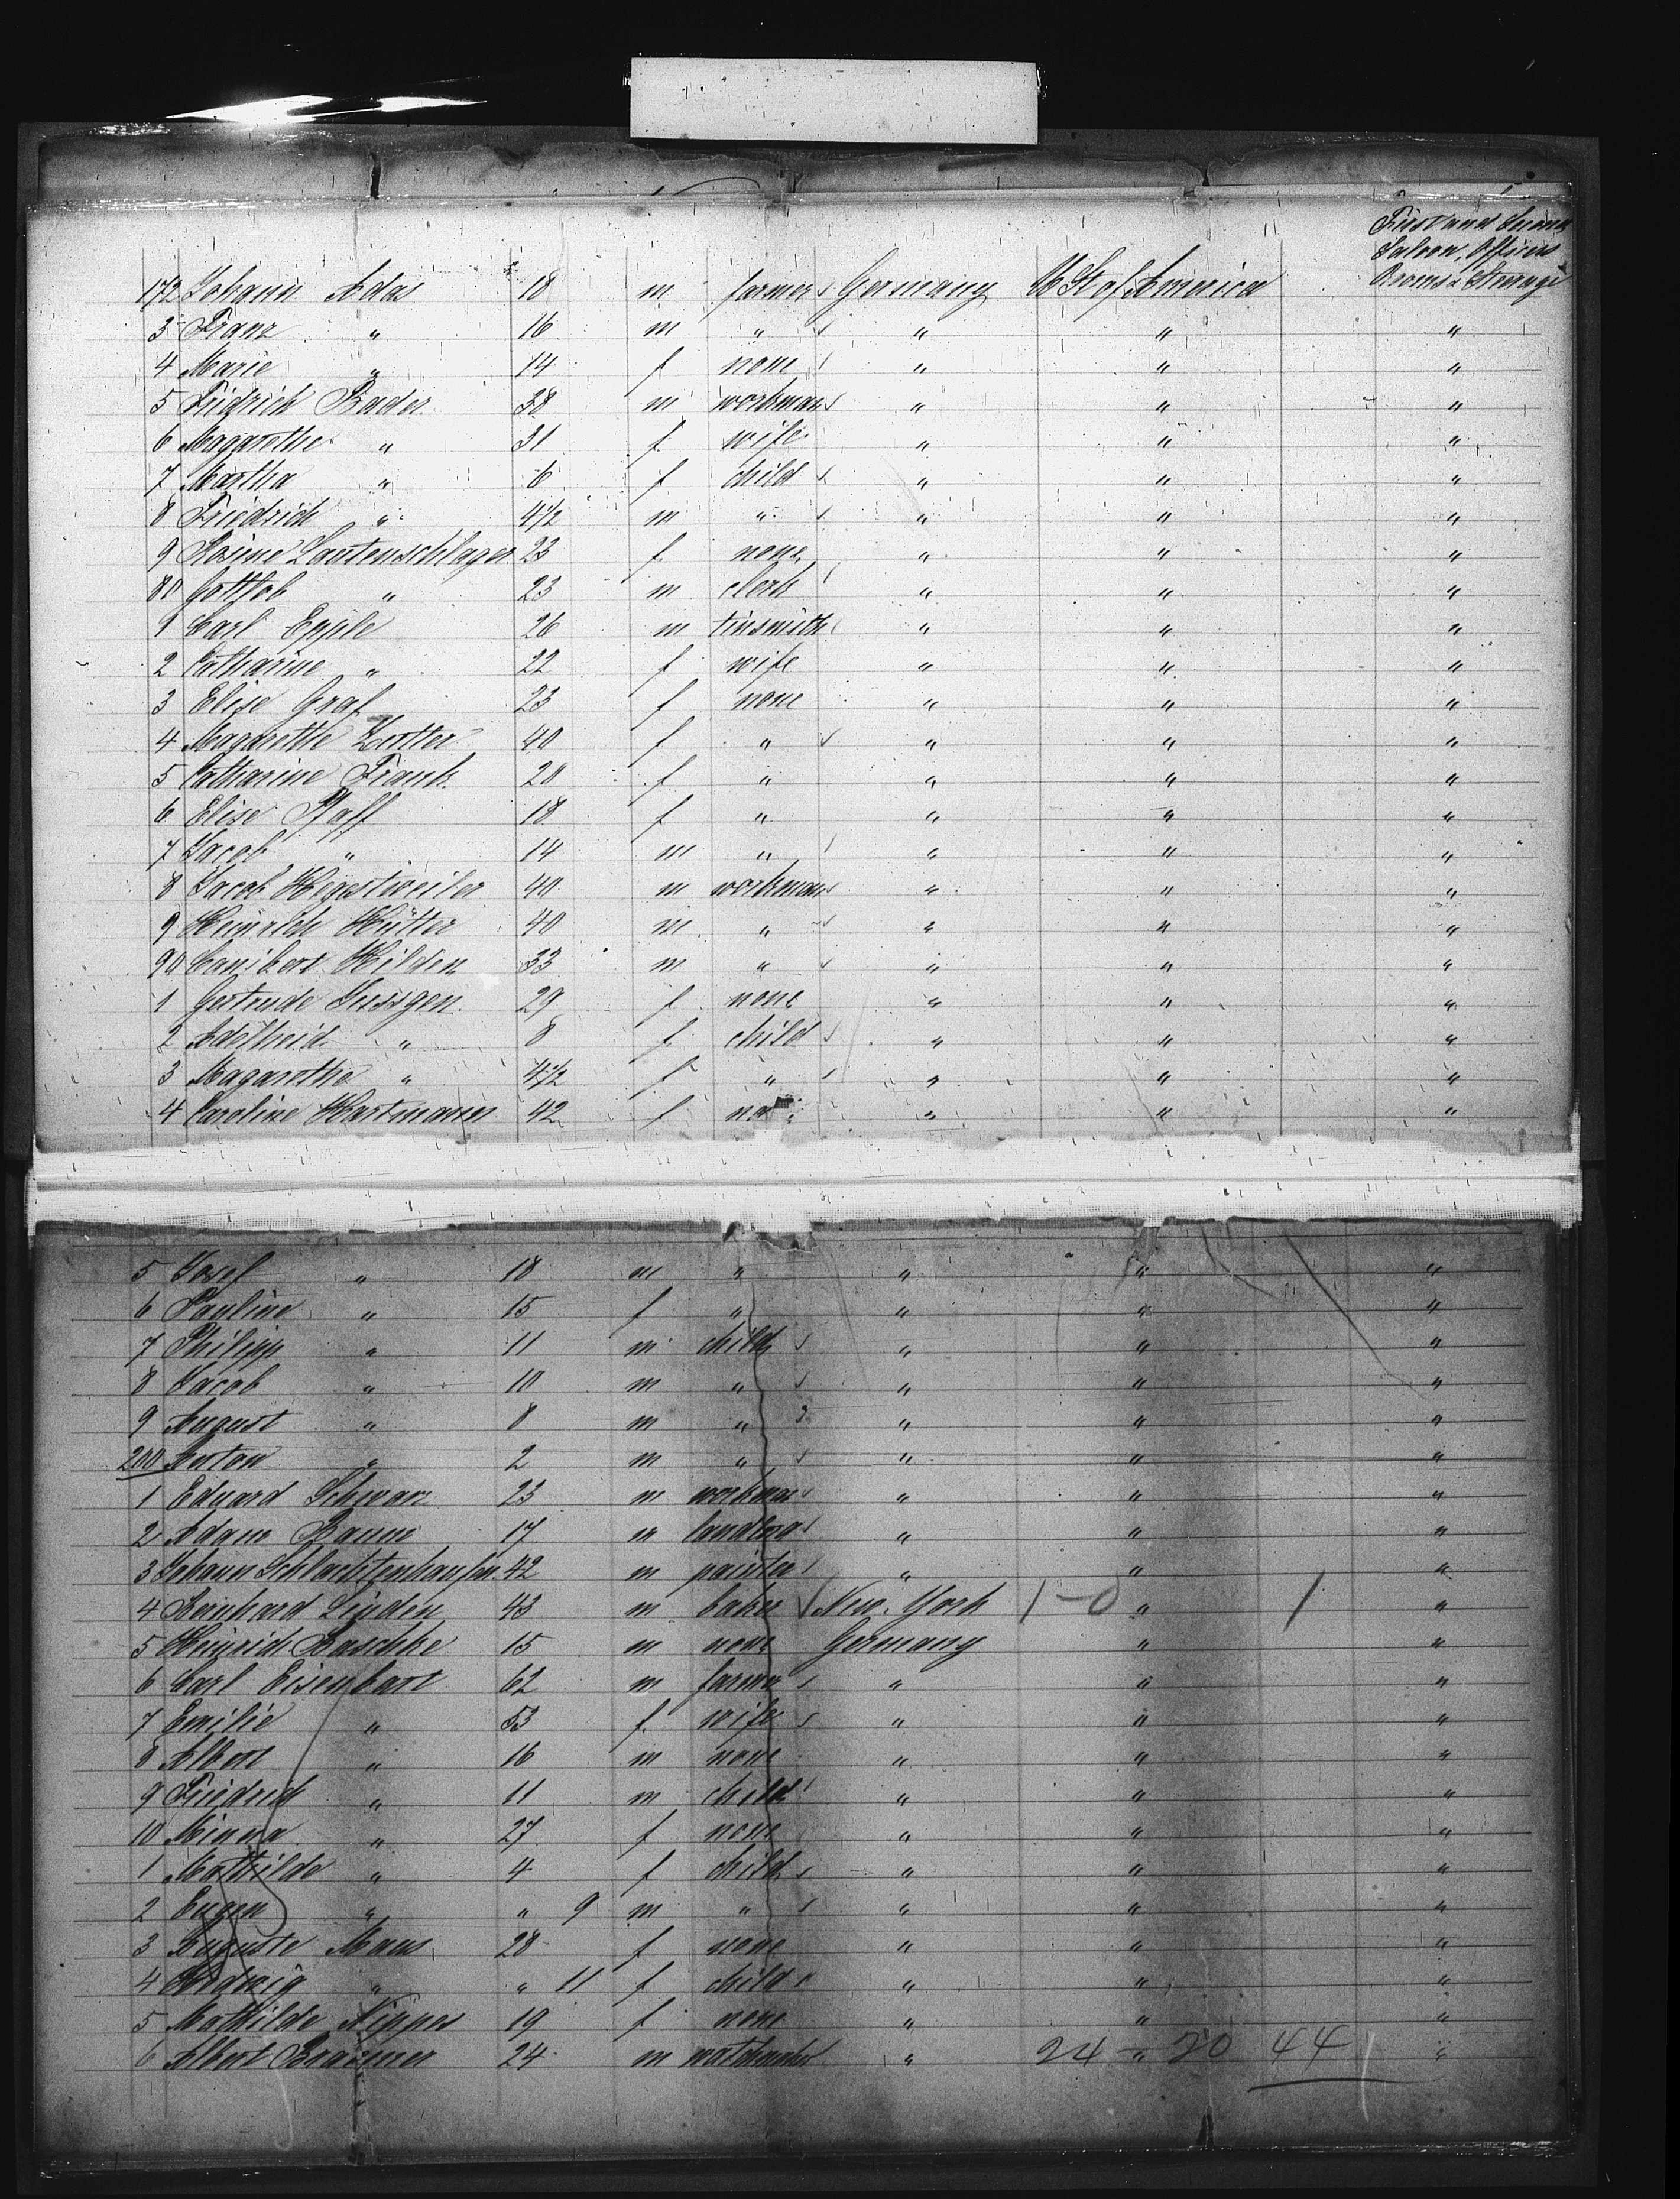 First and Second
Saloon, Officers
Rooms & Steerage
172 Johann Adas 18 m farmer Germany U St of America
3 Franz " 16 m " " " "
4 Marie " 14 f none " " "
5 Fridrich Bader 38 m workman " " "
6 Magarethe " 31 f wife " " "
7 Martha " 6 f child " " "
8 Friedrich " 4½ m " " " "
9 Rosine Lautenschlager 23 f none " " "
80 Gottlob " 23 m clerk " " "
1 Carl Epple 26 m tinsmith " " "
2 Catharine " 22 f wife " " "
3 Elise Graf 23 f none " " "
4 Magarethe 40 f " " " "
5 Catharine Frank 20 f " " " "
6 Elise Pfaff 18 f " " " "
7 Jacob " 14 m " " " "
8 Jacob 40 m workman " " "
9 Heinrich Hütter 40 m " " " "
90 Hilden 33 m " " " "
1 Gertrude 29 f none " " "
2 Adelheid " 8 f child " " "
3 Magarethe " 4½ f " " " "
4 Caroline Hartmann 42 f " " "
5 Josef " 18 m " " " "
6 Pauline " 15 f " " " "
7 Philipp " 11 m child " " "
8 Jacob " 10 m " " " "
9 August " 8 m " " " "
200 Anton " 2 m " " " "
1 Eduard Schwarz 23 m workman " " "
2 Adam 17 m " " "
3 Johann 42 m painter " " "
4 Bernhard Linden 43 m baker New York 1-0 " 1 "
5 Heinrich Baschke 15 m none Germany " "
6 Carl Eisenbart 62 m farmer " " "
7 Emilie " 53 f wife " " "
8 Albert " 16 m none " " "
9 Friedrich " 11 m child " " "
10 Minna " 27 f none " " "
1 Mathilde " 4 f child " " "
2 Eugen " " 9 m " " " "
3 Auguste Maus 28 f none " " "
4 Hedwig " " 11 f child " " "
5 Mathilde Nipper 19 f none " " "
6 Albert 24 m watchmaker " 24 - 20 44 "